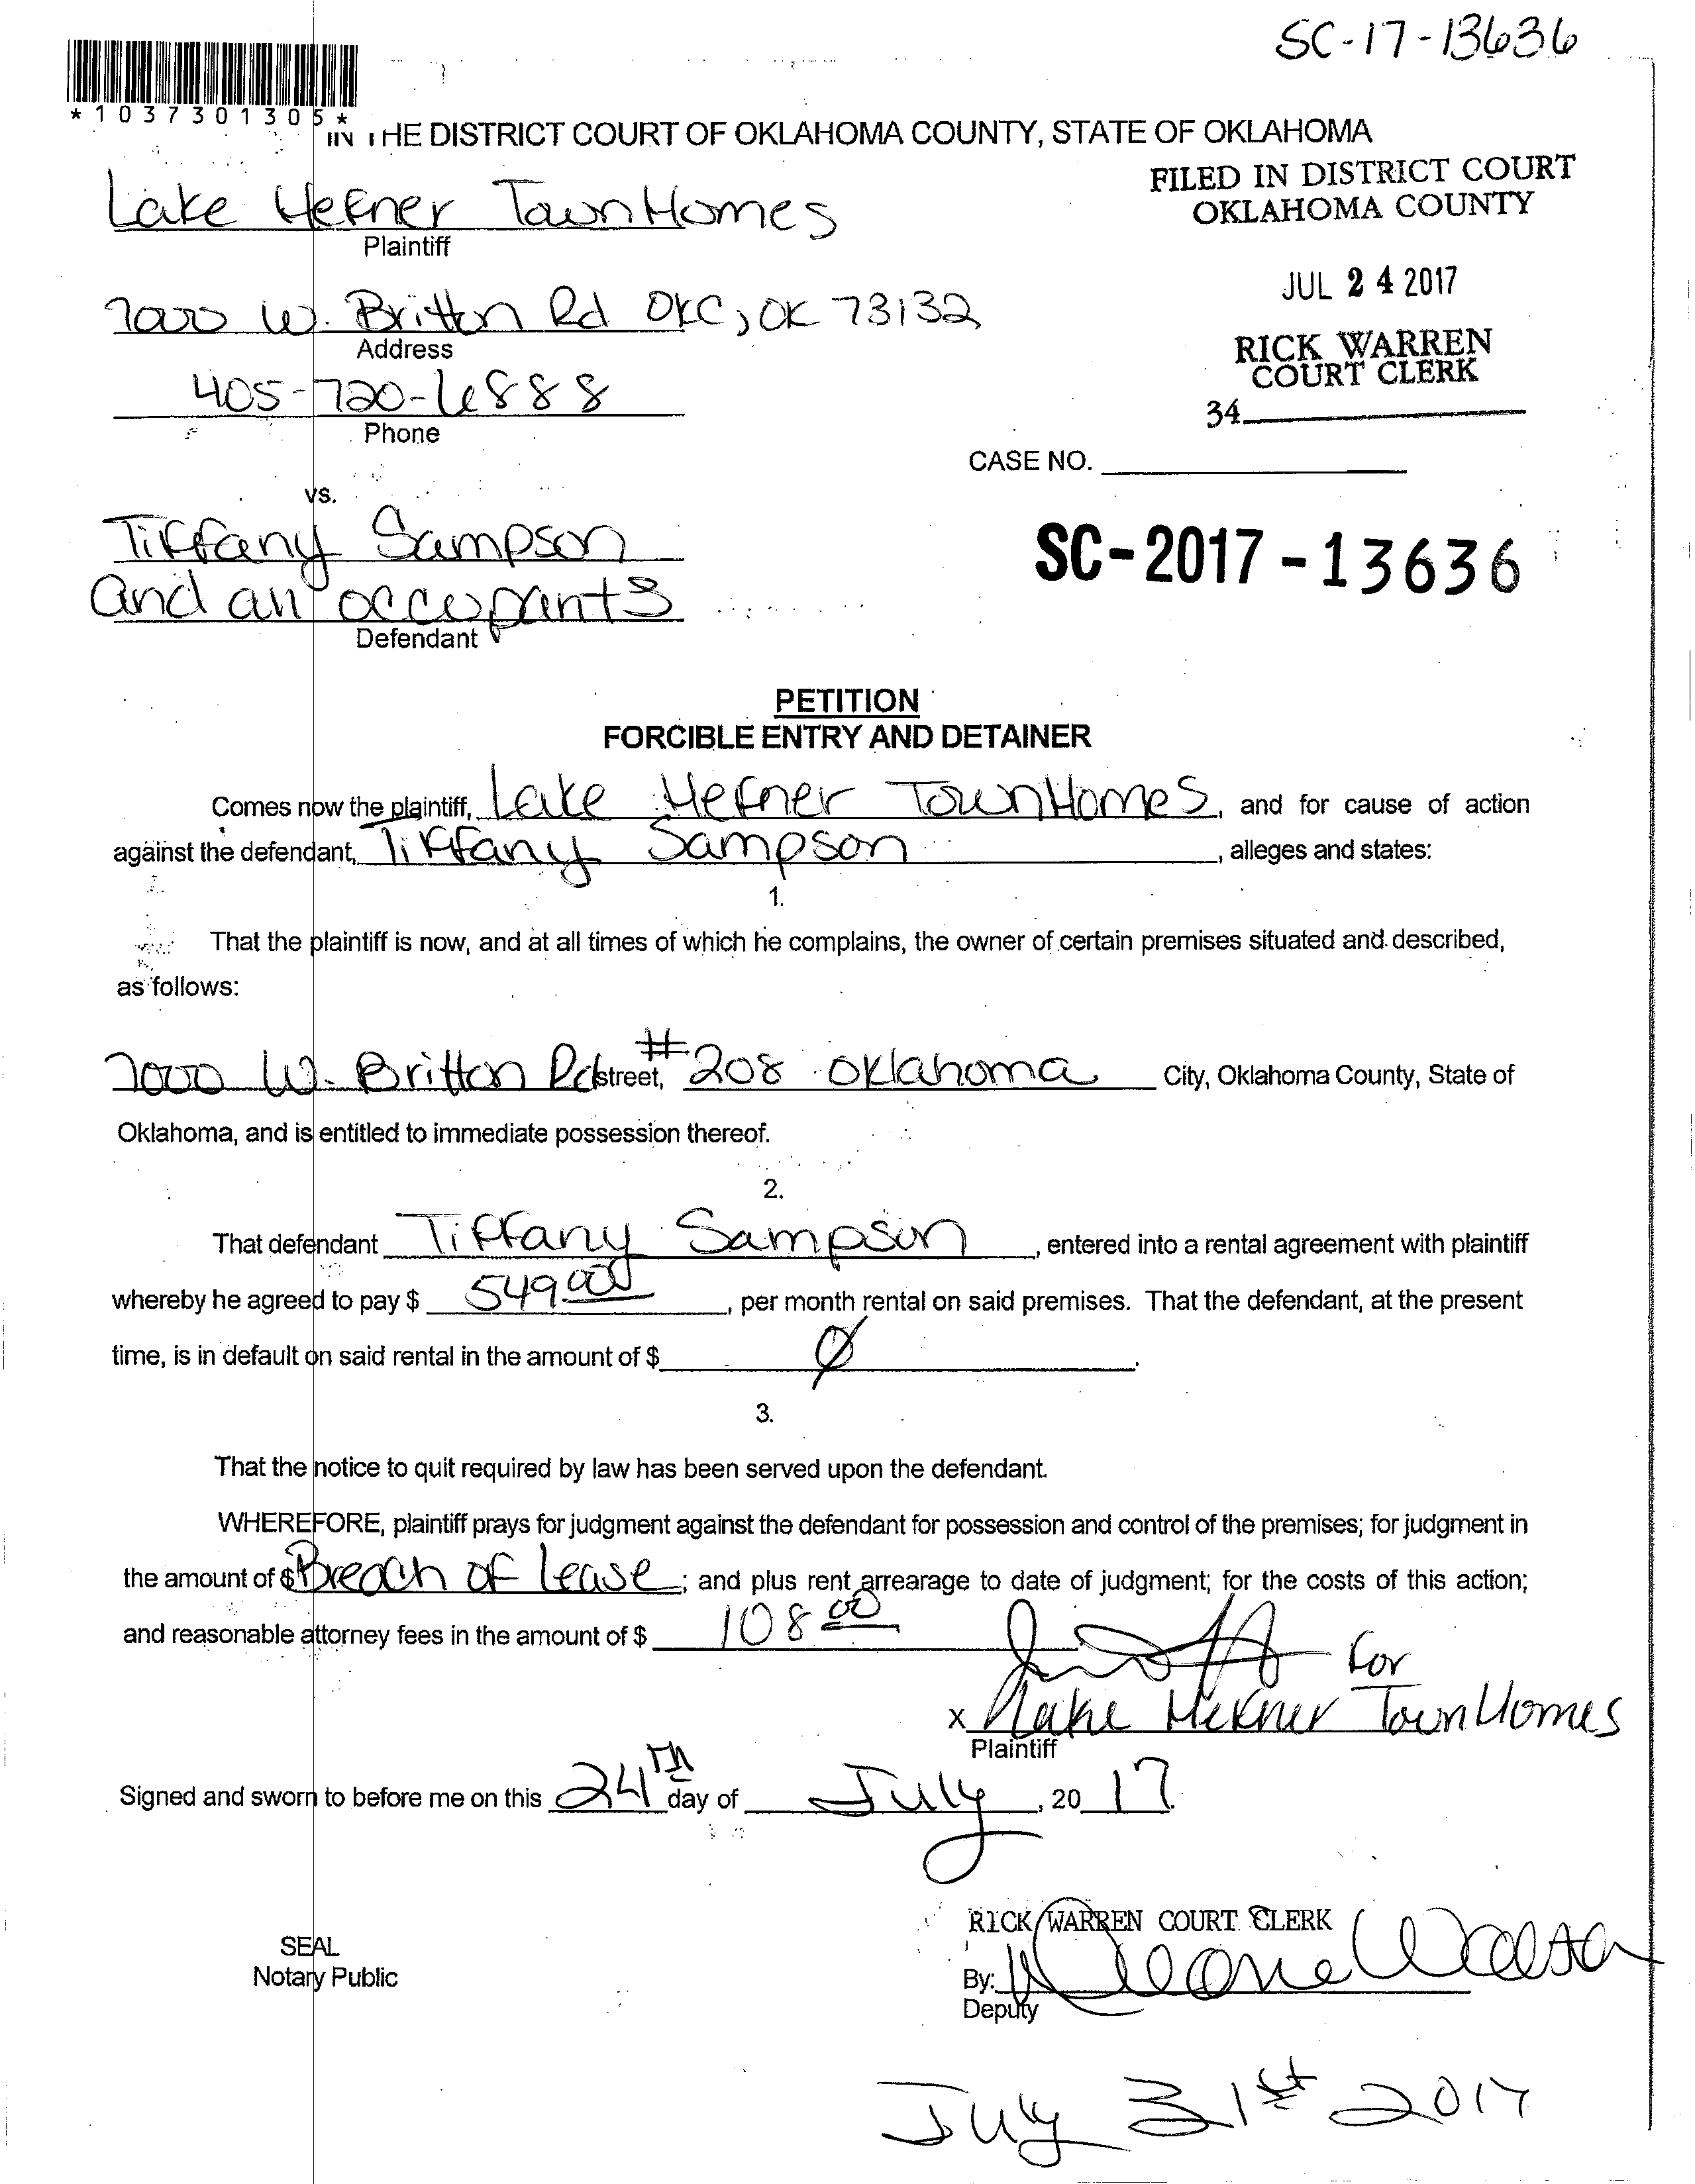 SC-17-13636
*1037301305*
IN THE DISTRICT COURT OF OKLAHOMA COUNTY, STATE OF OKLAHOMA
FILED IN DISTRICT COURT
OKLAHOMA COUNTY
Lake Hefner TownHomes
Plaintiff
JUL 24 2017
7000 W. Britton Rd OKC, OK 73132
Address
RICK WARREN
COURT CLERK
405-720-6888
Phone
34
CASE NO.
vs.
Tiffany Sampson
SC-2017-13636
and all occupants
Defendant
PETITION
FORCIBLE ENTRY AND DETAINER
Comes now the plaintiff, Lake Hefner TownHomes, and for cause of action
against the defendant, Tiffany Sampson, alleges and states:
1.
That the plaintiff is now, and at all times of which he complains, the owner of certain premises situated and described,
as follows:
7000 W. Britton Rd street, #208 Oklahoma City, Oklahoma County, State of
Oklahoma, and is entitled to immediate possession thereof.
2.
That defendant Tiffany Sampson, entered into a rental agreement with plaintiff
whereby he agreed to pay $ 549.00, per month rental on said premises. That the defendant, at the present
time, is in default on said rental in the amount of $ Ø.
3.
That the notice to quit required by law has been served upon the defendant.
WHEREFORE, plaintiff prays for judgment against the defendant for possession and control of the premises; for judgment in
the amount of $ Breach of Lease; and plus rent arrearage to date of judgment; for the costs of this action;
and reasonable attorney fees in the amount of $ 108 00
for
x Lake Hefner TownHomes
Plaintiff
Signed and sworn to before me on this 24th day of July, 20 17.
RICK WARREN COURT CLERK
SEAL
Notary Public
By:
Deputy
July 31st 2017